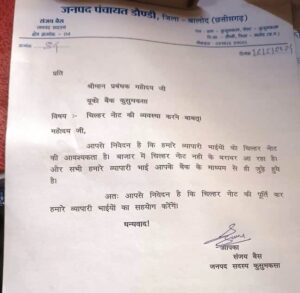 जनपद पंचायत डौण्डी, जिला - बालोद (छत्तीसगढ़)
संजय बैस
जनपद सदस्य
प्रति
श्रीमान प्रबंधक महोदय जी
यूको बैंक कुसुमकसा
विषय :- चिल्हर नोट की व्यवस्था करने बाबत्।
महोदय जी,
आपसे निवेदन है कि हमारे व्यापारी भाईयो को चिल्हर नोट
की आवश्यकता है। बाजार में चिल्हर नोट नही के बराबर आ रहा है।
और सभी हमारे व्यापारी भाई आपके बैंक के माध्यम से ही जुड़े हुये
है।
अतः आपसे निवेदन है कि चिल्हर नोट की पूर्ति कर
हमारे व्यापारी भाईयों का सहयोग करेंगे।
धन्यवाद!
आपका
संजय बैस
जनपद सदस्य कुसुमकसा